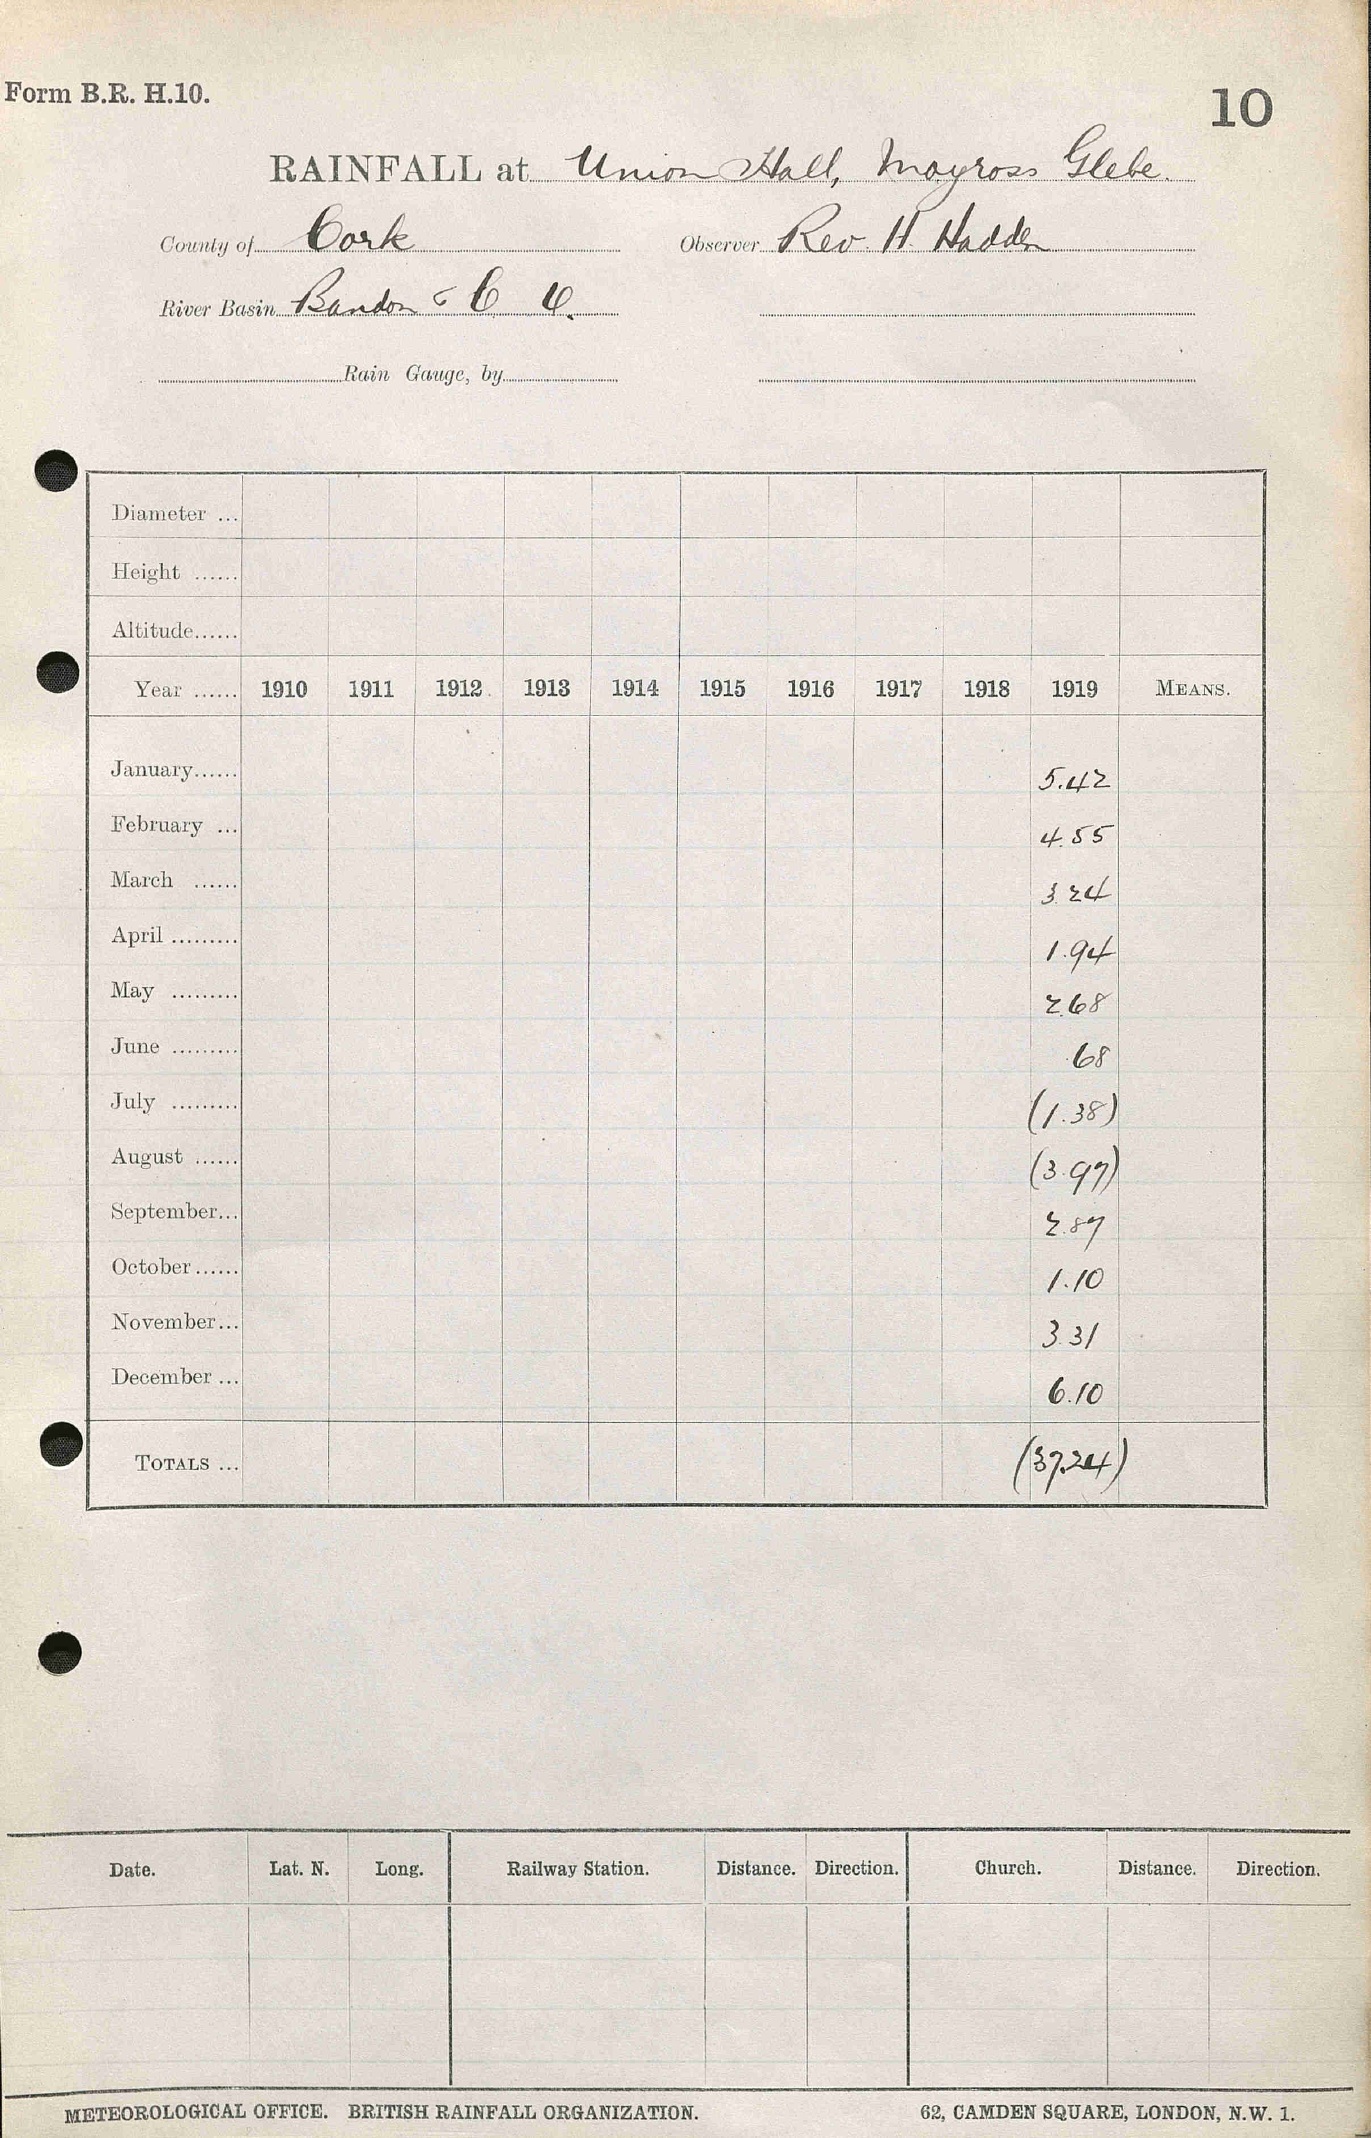 Form B.R. H.10.
10
RAINFALL at Union Hall, Moyross Glebe.
County of Cork Observer Rev. H. Hadden
River Basin Bandon & C
Rain Gauge, by
Diameter ...
Height ......
Altitude......
Year ...... 1910 1911 1912 1913 1914 1915 1916 1917 1918 1919 MEANS.
January...... 5.42
February ... 4.55
March ...... 3.24
April ......... 1.94
May ......... 2.68
June ......... .68
July ......... (1.38)
August ...... (3.97)
September... 2.87
October...... 1.10
November... 3.31
December ... 6.10
TOTALS ... (37.24)
Date. Lat. N. Long. Railway Station. Distance. Direction. Church. Distance. Direction.
METEOROLOGICAL OFFICE. BRITISH RAINFALL ORGANIZATION. 62, CAMDEN SQUARE, LONDON, N.W. 1.